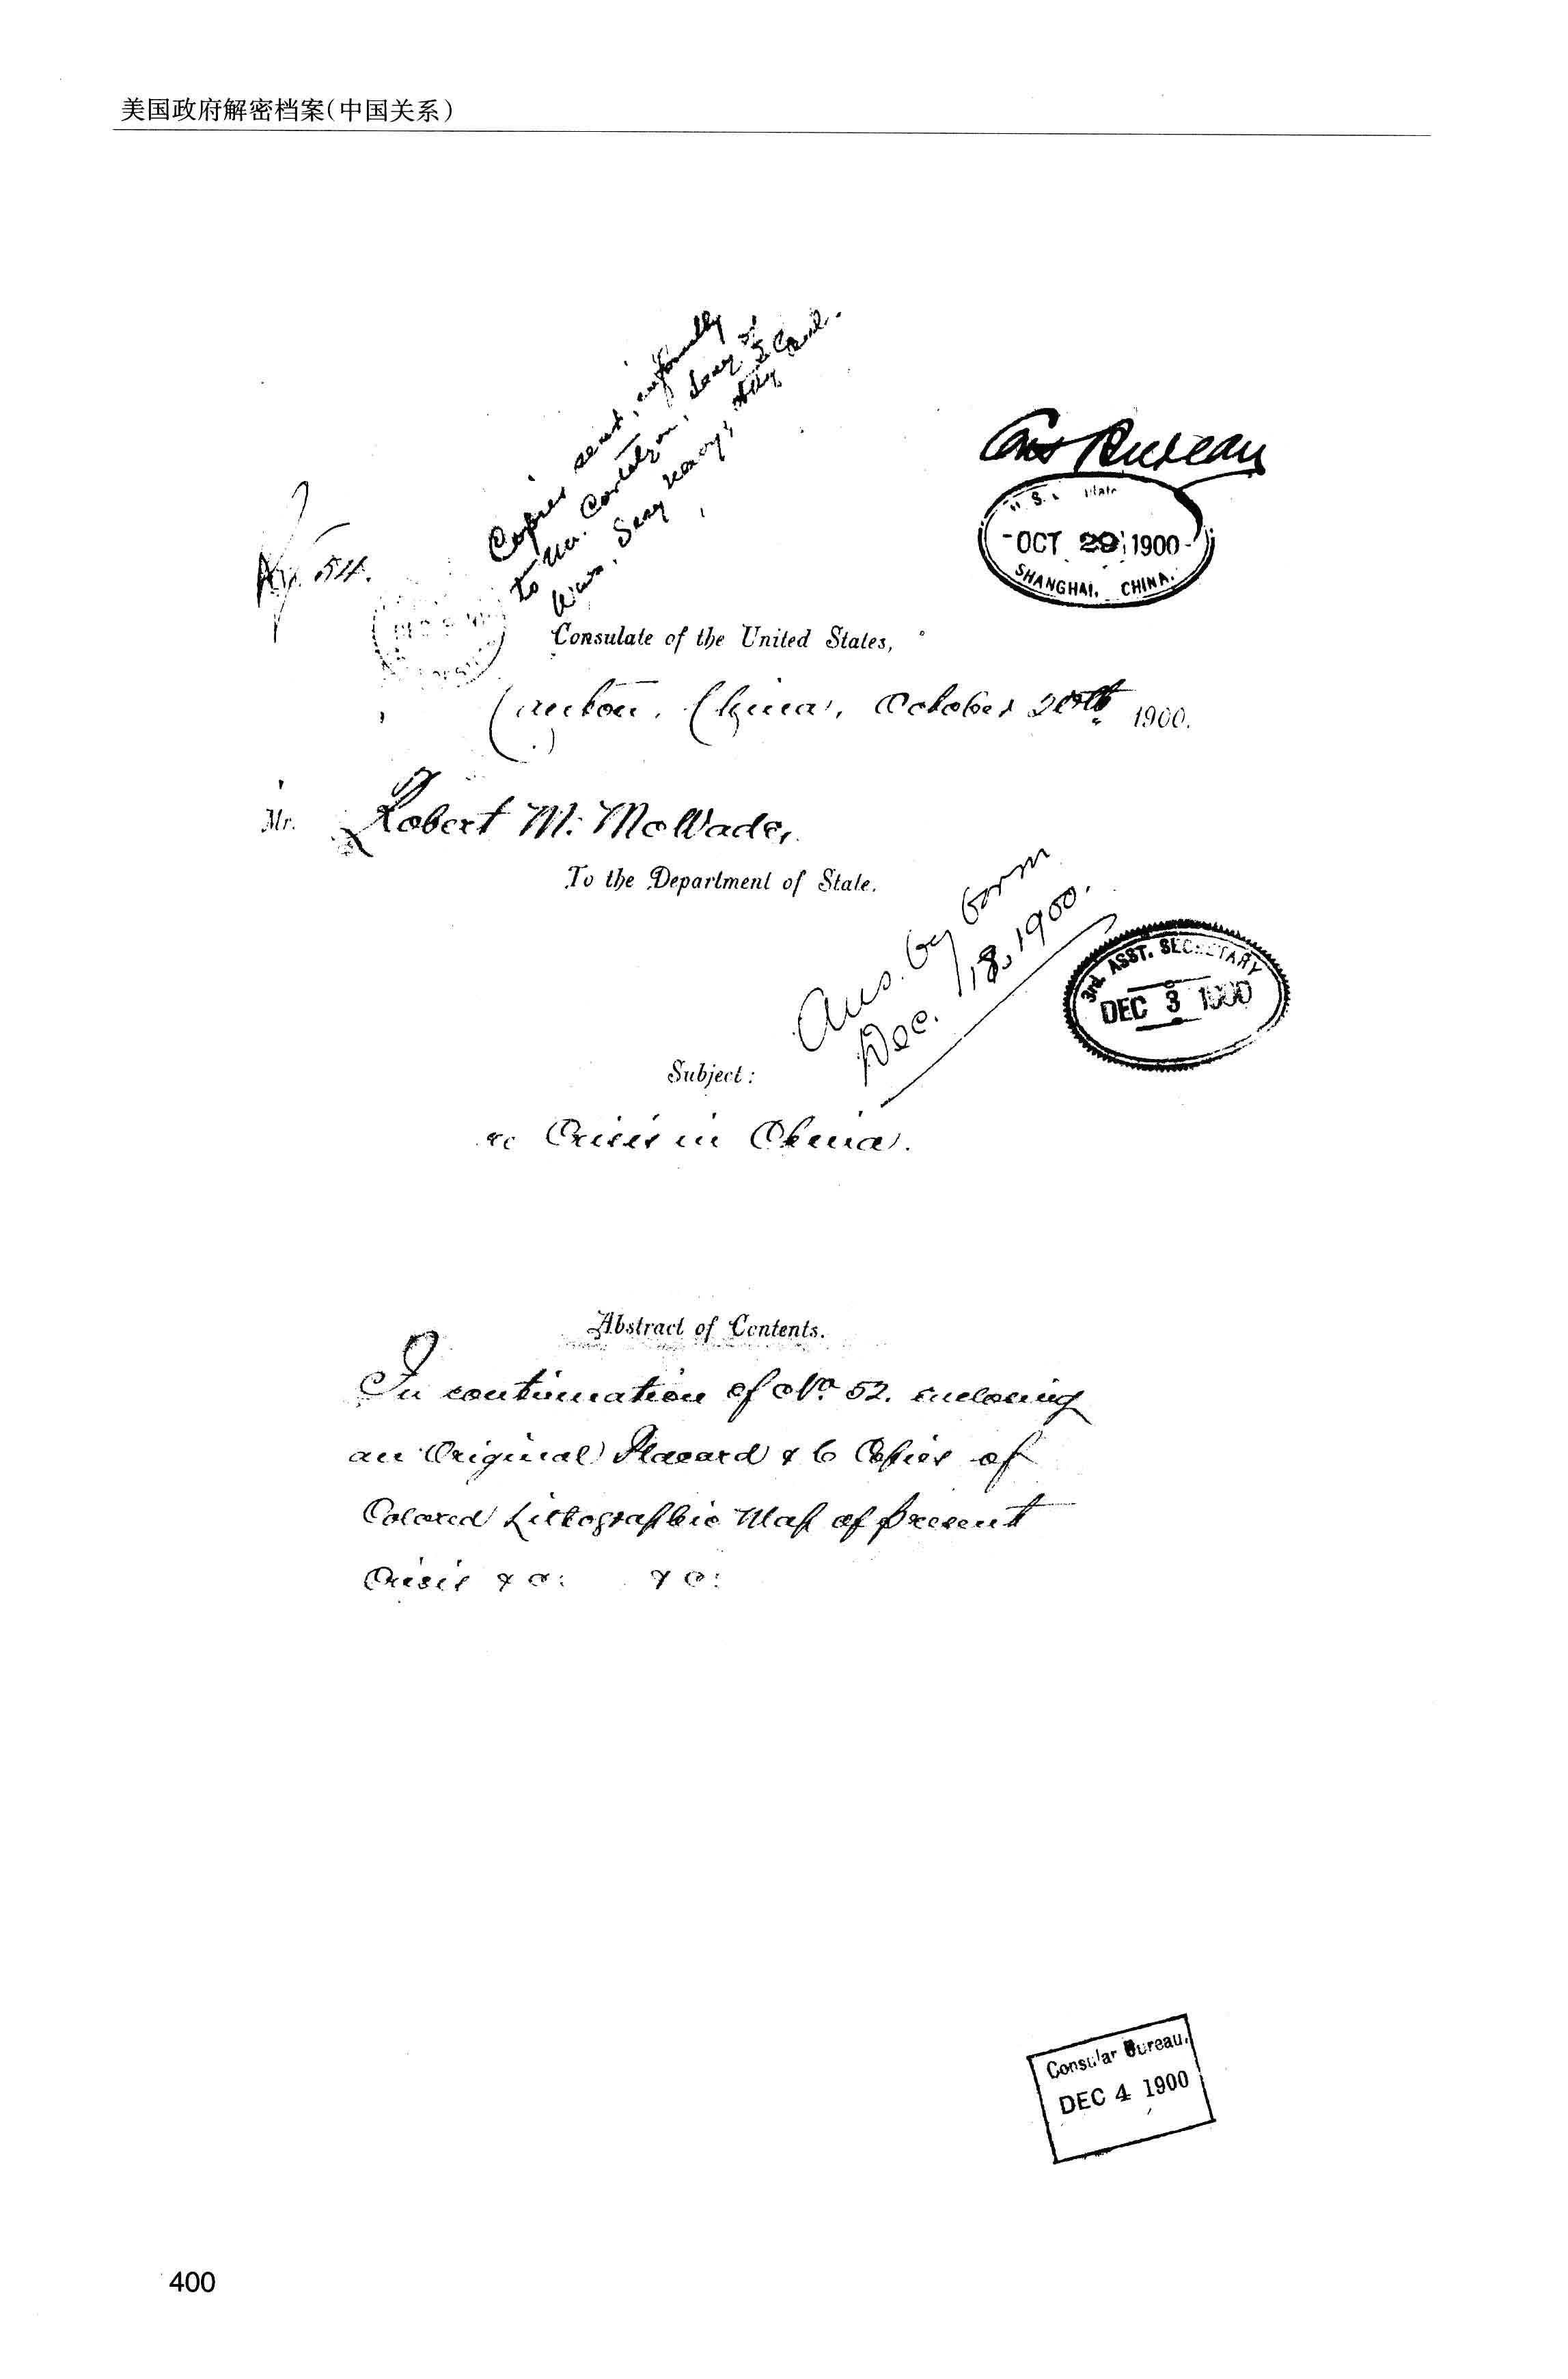 美国政府解密档案(中国关系)
Copies sent, informally
to Mr. Cortelyou, Secy of
War, Secy Navy,
Cons Bureau
OCT 29 1900
SHANGHAI, CHINA.
No. 54.
Consulate of the United States,
Canton, China, October 20th 1900.
Mr. Robert M. McWade,
To the Department of State.
Ans. by form
Dec. 18, 1900.
3rd. ASST. SECRETARY
DEC 3 1900
Subject:
re Crisis in China.
Abstract of Contents.
In continuation of No. 52. enclosing
an Original Placard & 6 Copies of
Colored Lithographic Map of present
Crisis &c: &c:
Consular Bureau.
DEC 4 1900
400